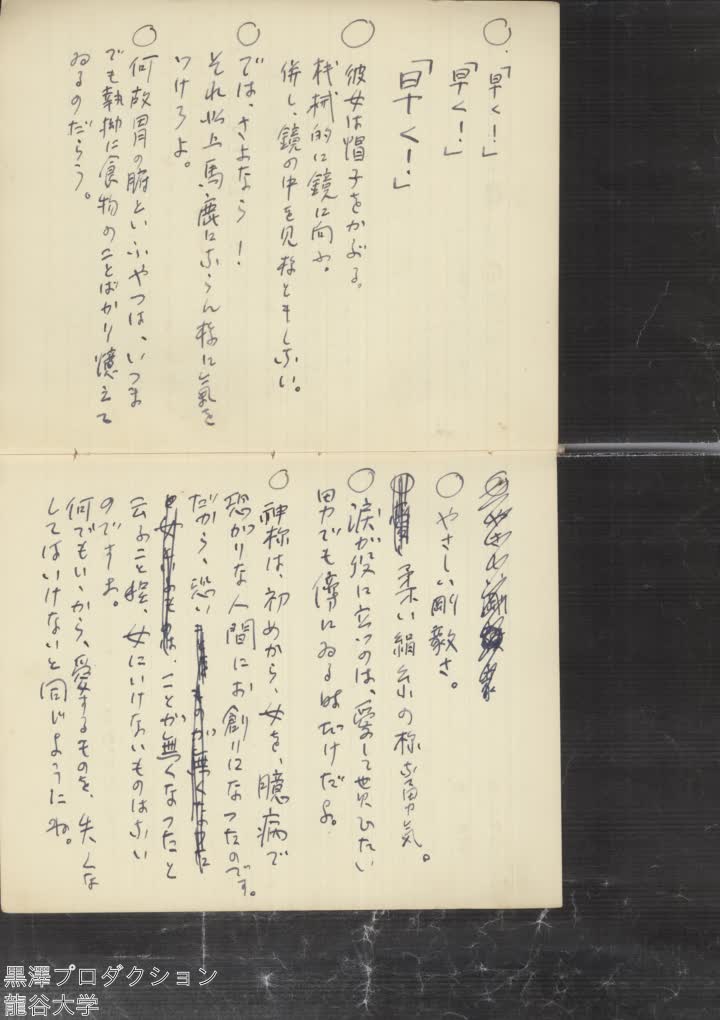 ○「早く!」
「早く!」
「早く!」
○ 彼女は帽子をかぶる。
机械的に鏡に向ふ。
併し、鏡の中を見様ともしない。
○ では、さよなら!
それ以上馬鹿にならん様に氣を
つけろよ。
○ 何故胃の腑といふやつは、いつま
でも執拗に食物のことばかり憶えて
ゐるのだらう。
○ やさしい剛毅さ。
○ 柔い絹糸の称な勇気。
○ 涙が役に立つのは、愛して貰ひたい
男でも傍にゐる時だけだよ。
○ 神称は、初めから、女を、臆病で
恐がりな人間にお創りになつたのです。
だから、恐い
ことが無くなつたと
云ふこと程、女にいけないものはない
のですよ。
何でもいゝから、愛するものを、失くな
してはいけないと同じようにね。
黒澤プロダクション
龍谷大学